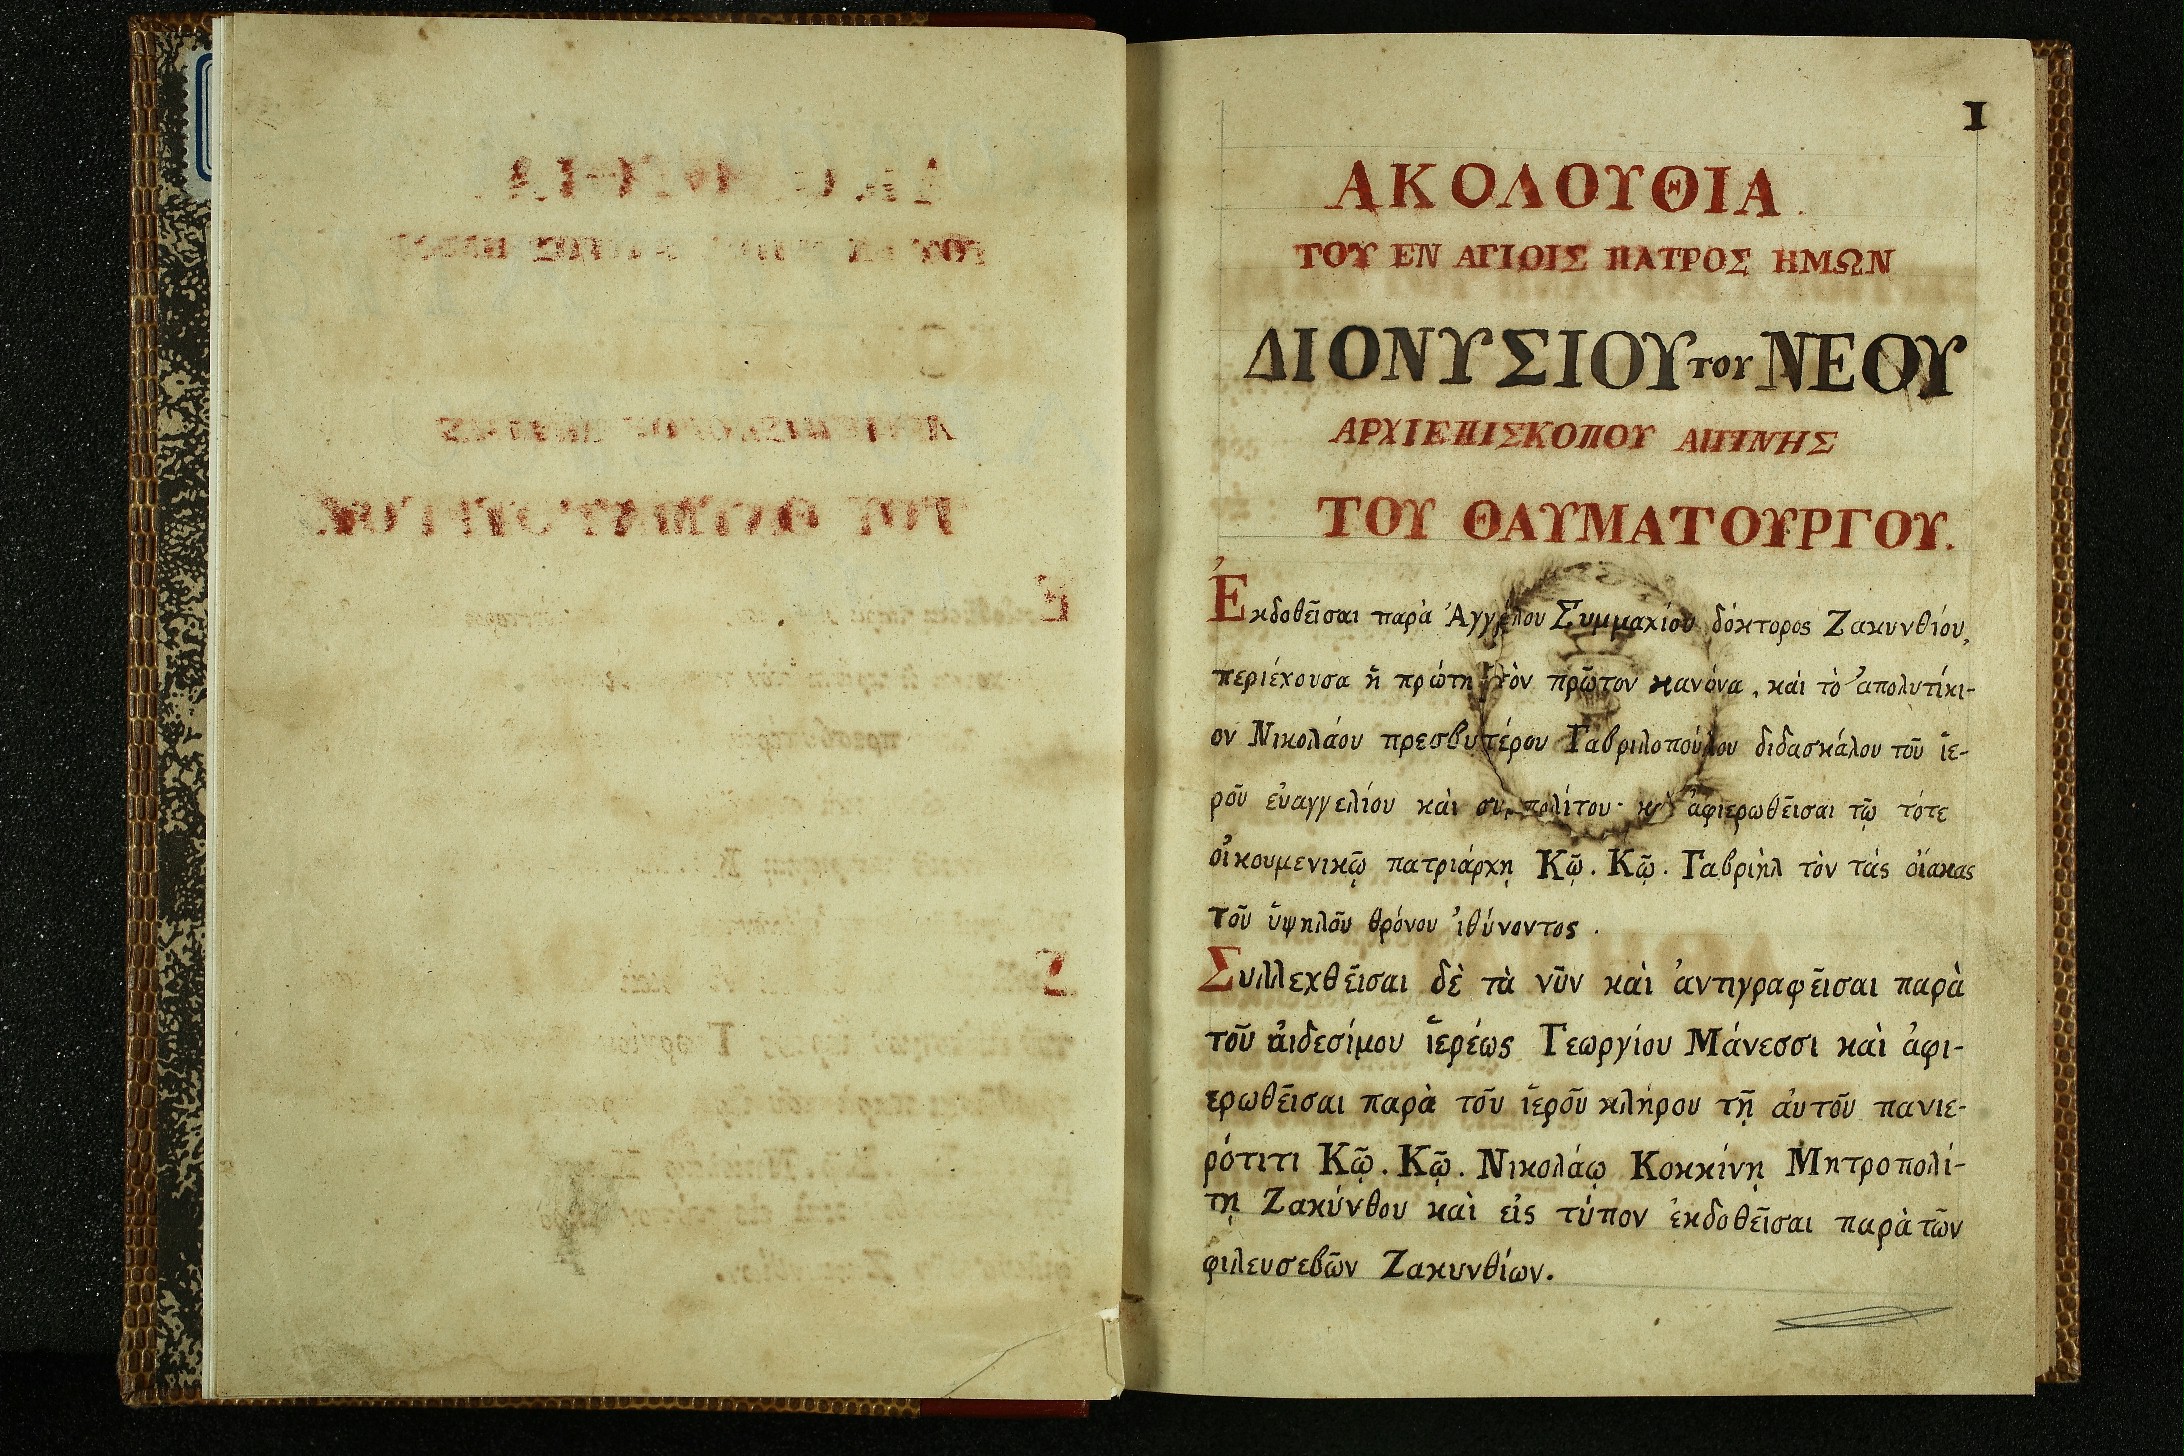 1
ΑΚΟΛΟΥΘΙΑ
ΤΟΥ ΕΝ ΑΓΙΟΙΣ ΠΑΤΡΟΣ ΗΜΩΝ
ΔΙΟΝΥΣΙΟΥ ΤΟΥ ΝΕΟΥ
ΑΡΧΙΕΠΙΣΚΟΠΟΥ ΑΙΓΙΝΗΣ
ΤΟΥ ΘΑΥΜΑΤΟΥΡΓΟΥ.
Ἐκδοθεῖσαι παρὰ Ἀγγέλου Συμμακίου δόκτορος Ζακυνθίου,
περιέχουσα ἡ πρώτη τὸν πρῶτον κανόνα, καὶ τὸ ἀπολυτίκι-
ον Νικολάου πρεσβυτέρου Γαβριλοπούλου διδασκάλου τοῦ ἱε-
ροῦ εὐαγγελίου καὶ συμπολίτου· κ ἀφιερωθεῖσαι τῷ τότε
οἰκουμενικῷ πατριάρχῃ Κῷ. Κῷ. Γαβριὴλ τὸν τὰς οἴακας
τοῦ ὑψηλοῦ θρόνου ἰθύνοντος.
Συλλεχθεῖσαι δὲ τὰ νῦν καὶ ἀντιγραφεῖσαι παρὰ
τοῦ αἰδεσίμου ἱερέως Γεωργίου Μάνεσσι καὶ ἀφι-
ερωθεῖσαι παρὰ τοῦ ἱεροῦ κλήρου τῇ αὐτοῦ πανιε-
ρότιτι Κῷ. Κῷ. Νικολάῳ Κοκκίνῃ Μητροπολί-
τῃ Ζακύνθου καὶ εἰς τύπον ἐκδοθεῖσαι παρὰ τῶν
φιλευσεβῶν Ζακυνθίων.